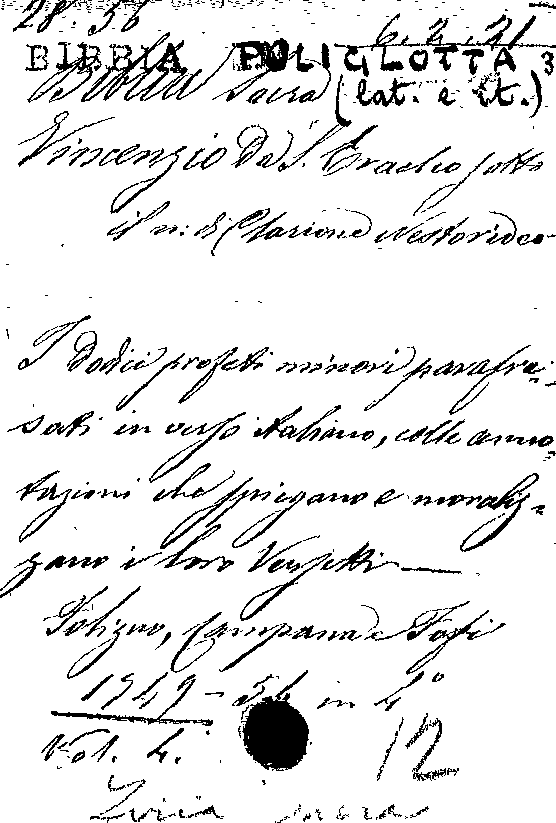 28. 36
6. 2. 21
BIBBIA POLIGLOTTA 3
Biblia Sacra (lat. e it.)
Vincenzio Da S. Eraclio sotto
il n: di Clarione Nestorideo
I dodici profeti minori parafra-
sati in verso italiano, colle anno-
tazioni che spiegano e moraliz-
zano i loro Versetti —
Foligno, Campana e
1749 - in 4°
Vol. 4.
12